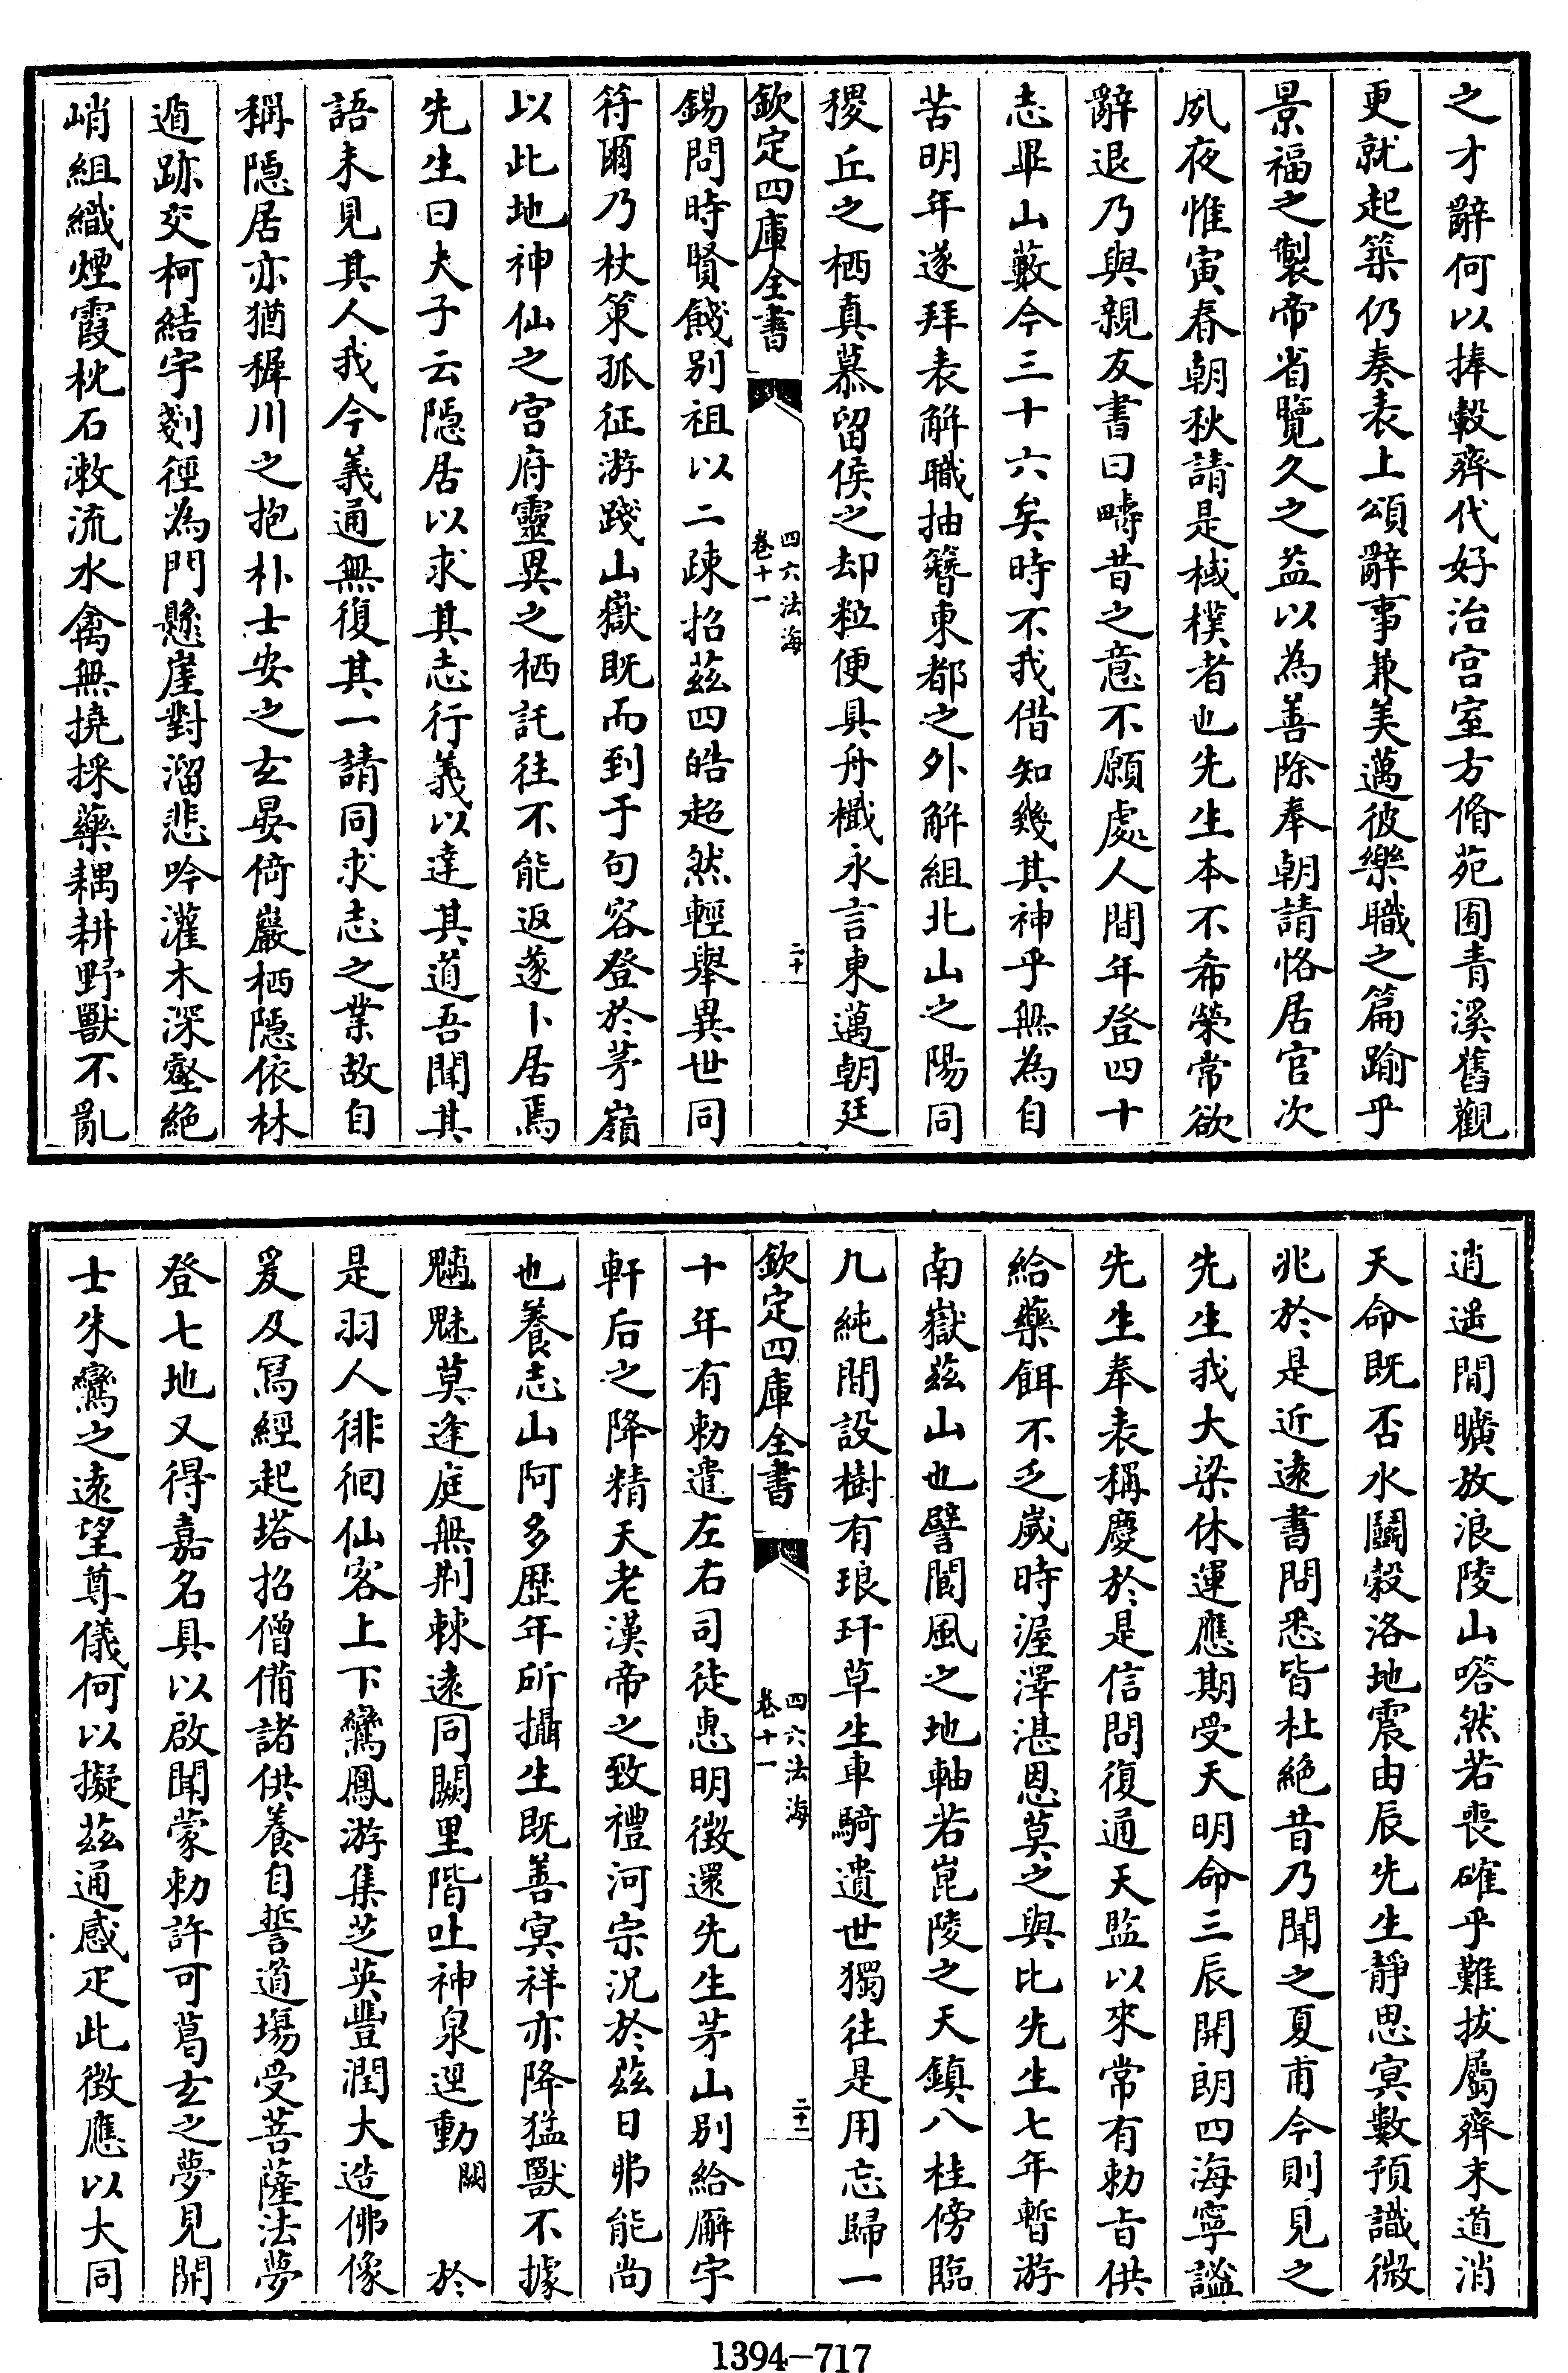 之才辭何以捧轂齊代好治宮室方脩苑囿青溪舊觀
更就起築仍奏表上頌辭事兼美邁彼樂職之篇踰乎
景福之製帝省覽久之益以為善除奉朝請恪居官次
夙夜惟寅春朝秋請是棫樸者也先生本不希榮常欲
辭退乃與親友書曰疇昔之意不願處人間年登四十
志畢山藪今三十六矣時不我借知幾其神乎無為自
苦明年遂拜表解職抽簪東都之外解組北山之陽同
稷丘之栖真慕留侯之却粒便具舟檝永言東邁朝廷
欽定四庫全書
四六法海
卷十一
二十
錫問時賢餞別祖以二疎招茲四皓超然輕舉異世同
符爾乃杖策孤征游踐山嶽既而到于句容登於茅嶺
以此地神仙之宮府靈異之栖託往不能返遂卜居焉
先生曰夫子云隱居以求其志行義以達其道吾聞其
語未見其人我今義通無復其一請同求志之業故自
稱隱居亦猶穉川之抱朴士安之玄晏倚巖栖隱依林
遁跡交柯結宇剗徑為門懸崖對溜悲吟灌木深壑絕
峭組織煙霞枕石漱流水禽無撓採藥耦耕野獸不亂
逍遥閒曠放浪陵山嗒然若喪確乎難拔屬齊末道消
天命既否水鬬榖洛地震由辰先生靜思冥數預識微
兆於是近遠書問悉皆杜絕昔乃聞之夏甫今則見之
先生我大梁休運應期受天明命三辰開朗四海寧謐
先生奉表稱慶於是信問復通天監以來常有勅旨供
給藥餌不乏歲時渥澤湛恩莫之與比先生七年暫游
南嶽茲山也譬閬風之地軸若崑陵之天鎮八桂傍臨
九純間設樹有琅玕草生車騎遺世獨往是用忘歸一
欽定四庫全書
四六法海
卷十一
二十一
十年有勅遣左右司徒惠明徵還先生茅山別給廨宇
軒后之降精天老漢帝之致禮河宗況於茲日弗能尚
也養志山阿多歷年所攝生既善冥祥亦降猛獸不據
魑魅莫逢庭無荆棘遠同闕里階吐神泉迎動闕　於
是羽人徘徊仙客上下鸞鳳游集芝英豐潤大造佛像
爰及冩經起塔招僧備諸供養自誓道場受菩薩法夢
登七地又得嘉名具以啟聞蒙勅許可葛玄之夢見開
士朱鸞之遠望尊儀何以擬茲通感疋此徵應以大同
1394–717